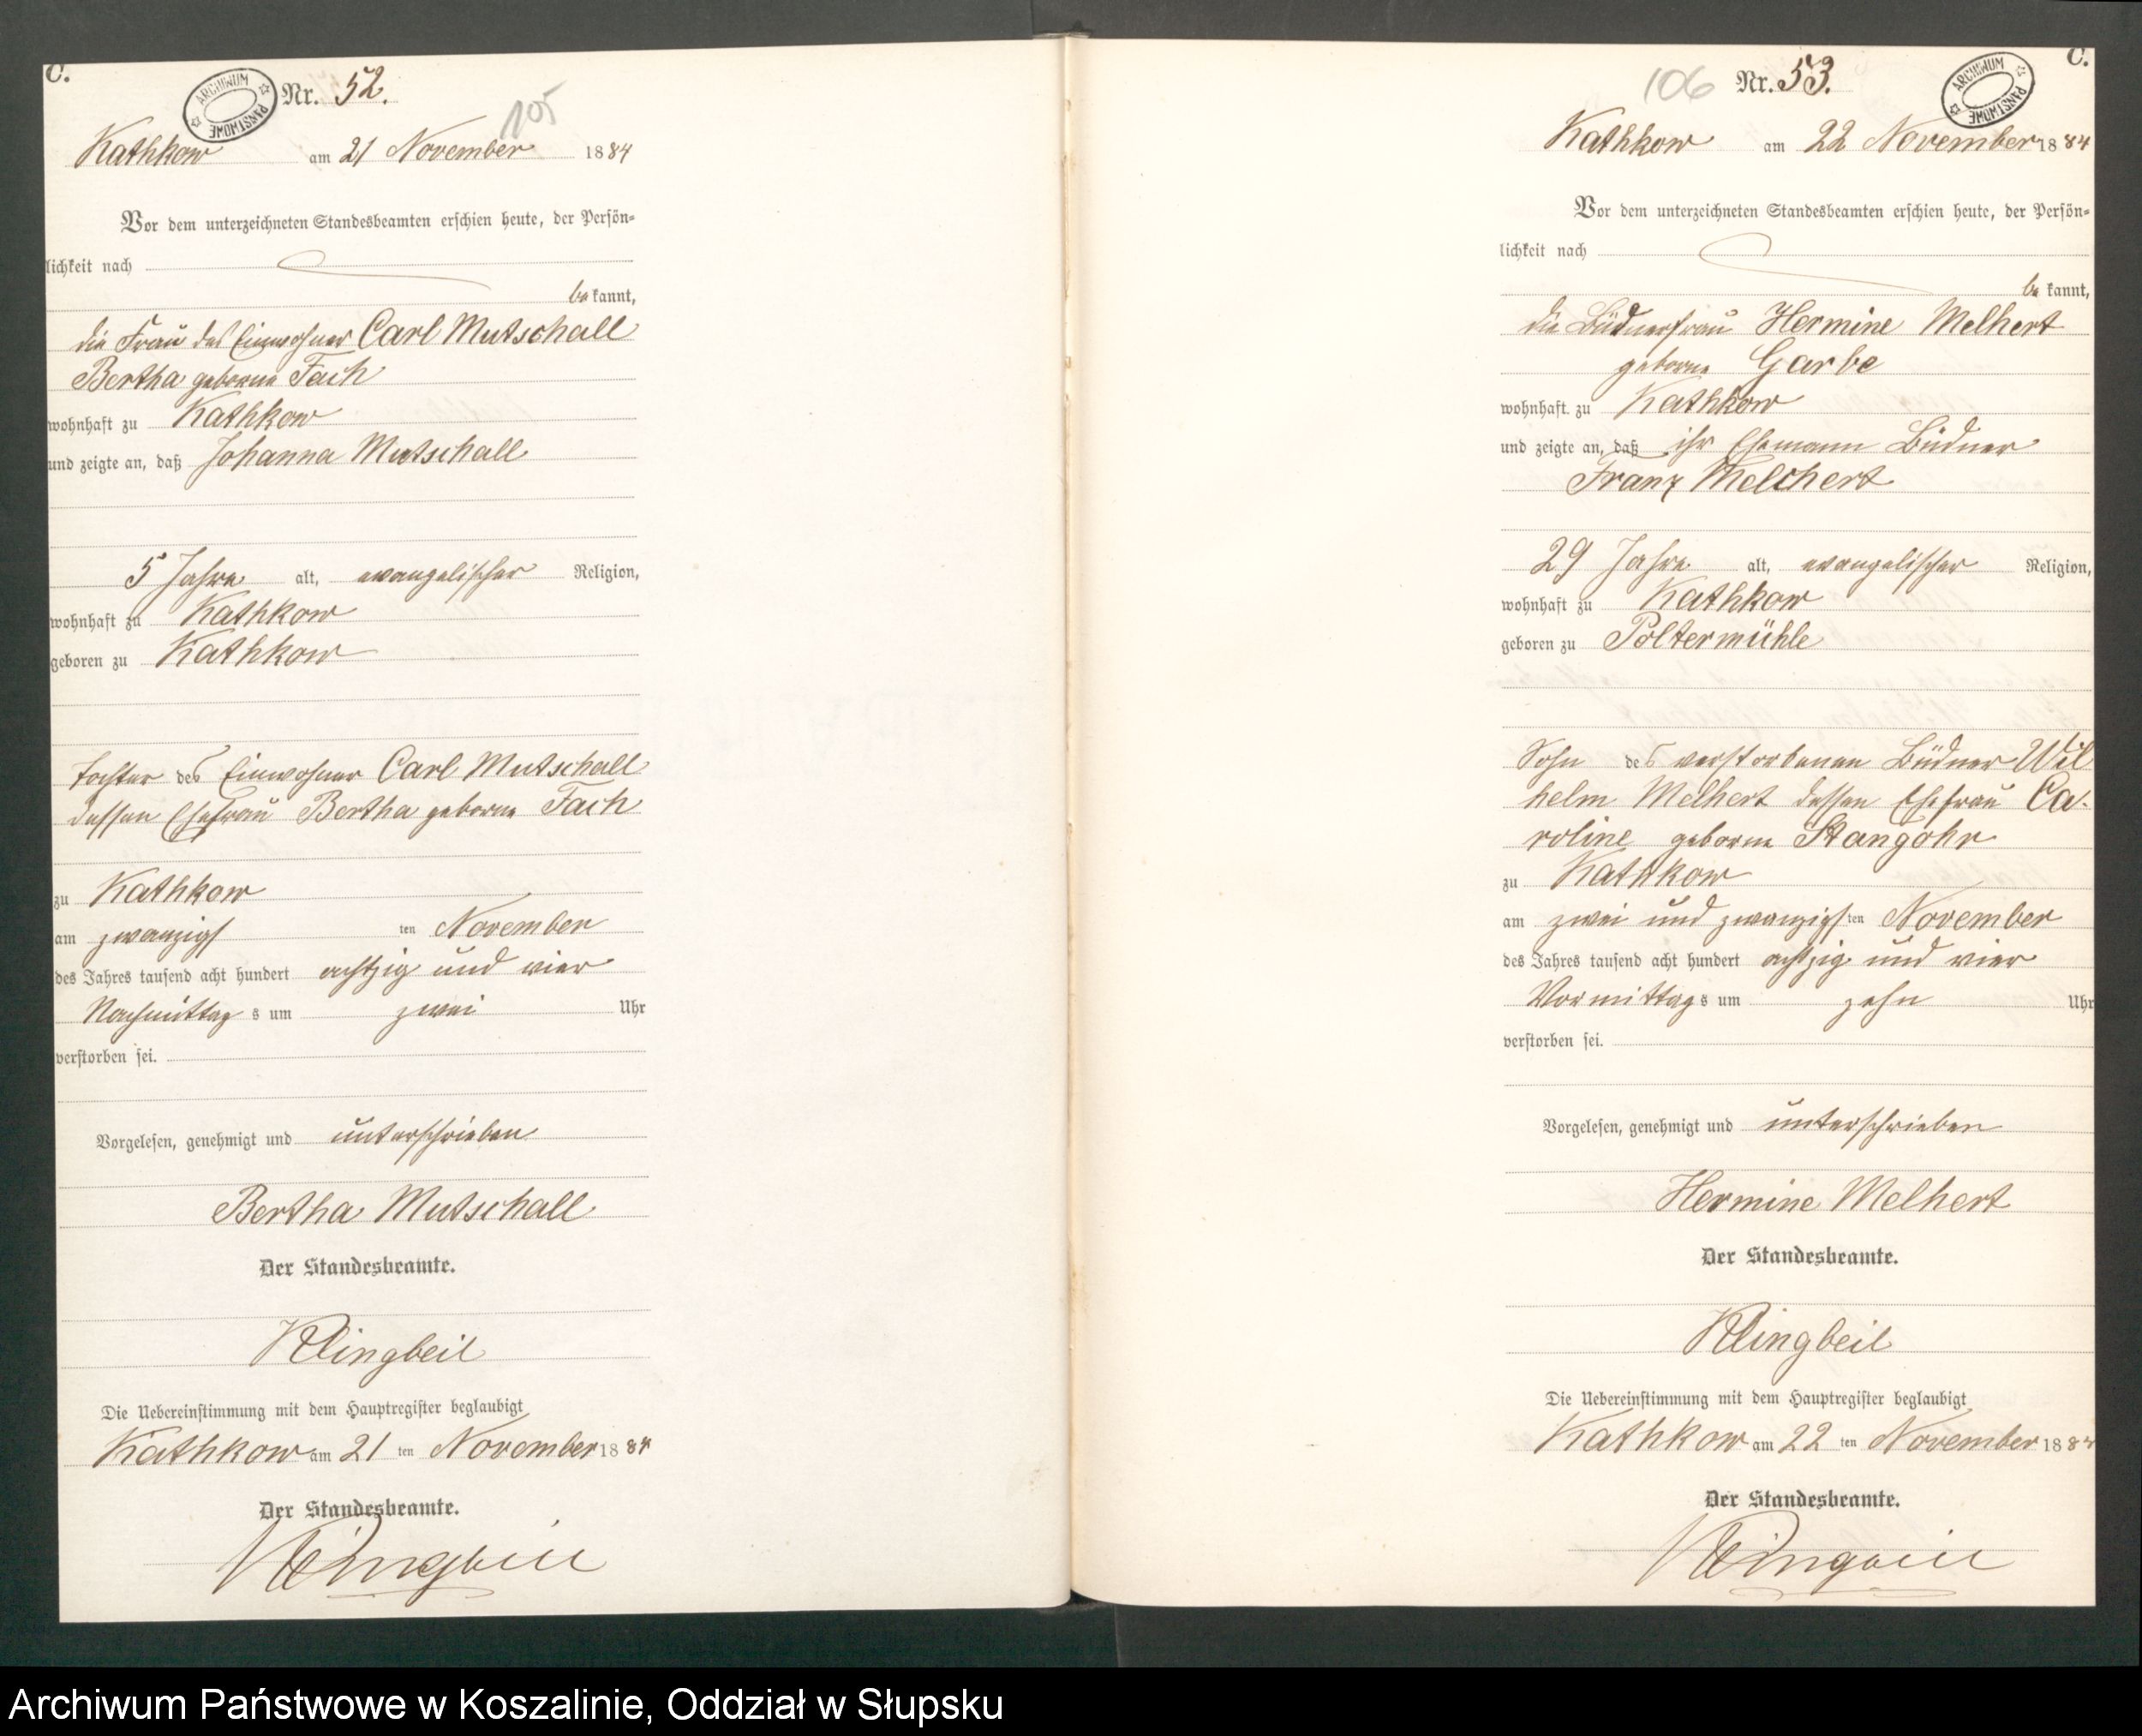 C.
ARCHIWUM PAŃSTWOWE
Nr. 52.
105
Kathkow am 21 November 1884
Vor dem unterzeichneten Standesbeamten erschien heute, der Persön-
lichkeit nach
be kannt,
die Frau des Einwohner Carl Mutschall
Bertha geborne Fach
wohnhaft zu Kathkow
und zeigte an, daß Johanna Mutschall
5 Jahre alt, evangelischer Religion,
wohnhaft zu Kathkow
geboren zu Kathkow
Tochter des Einwohner Carl Mutschall
dessen Ehefrau Bertha geborne Fach
zu Kathkow
am zwanzigs ten November
des Jahres tausend acht hundert achtzig und vier
Nachmittag s um zwei Uhr
verstorben sei.
Vorgelesen, genehmigt und unterschrieben
Bertha Mutschall
Der Standesbeamte.
Klingbeil
Die Uebereinstimmung mit dem Hauptregister beglaubigt
Kathkow am 21 ten November 1884
Der Standesbeamte.
Klingbeil
C.
ARCHIWUM PAŃSTWOWE
106
Nr. 53.
Kathkow am 22 November 1884
Vor dem unterzeichneten Standesbeamten erschien heute, der Persön-
lichkeit nach
be kannt,
die Büdnerfrau Hermine Melhert
geborne Garbe
wohnhaft zu Kathkow
und zeigte an, daß ihr Ehemann Büdner
Franz Melchert
29 Jahre alt, evangelischer Religion,
wohnhaft zu Kathkow
geboren zu Poltermühle
Sohn des verstorbenen Büdner Wil
helm Melhert dessen Ehefrau Ca-
roline geborne Stangohr
zu Kathkow
am zwei und zwanzigs ten November
des Jahres tausend acht hundert achtzig und vier
Vormittag s um zehn Uhr
verstorben sei.
Vorgelesen, genehmigt und unterschrieben
Hermine Melhert
Der Standesbeamte.
Klingbeil
Die Uebereinstimmung mit dem Hauptregister beglaubigt
Kathkow am 22 ten November 1884
Der Standesbeamte.
Klingbeil
Archiwum Państwowe w Koszalinie, Oddział w Słupsku